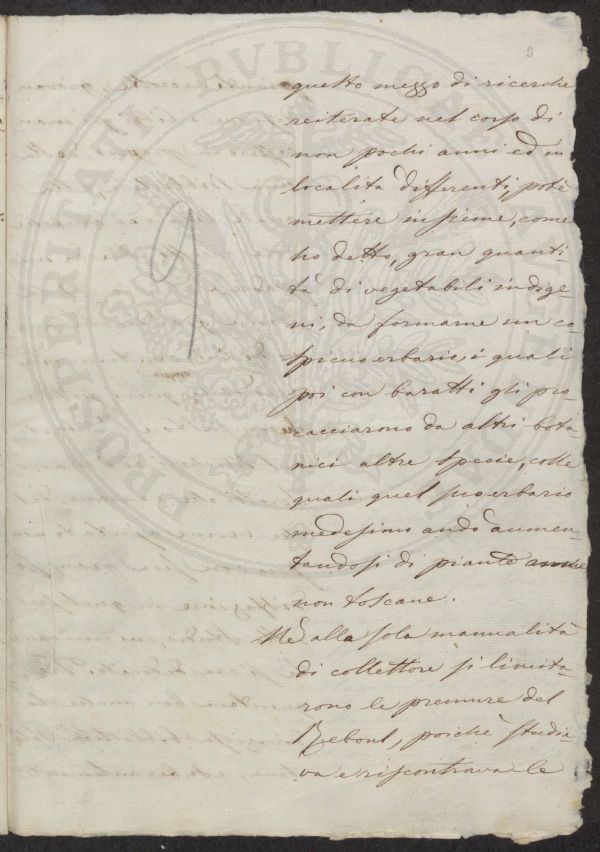 9
questo mezzo di ricerche
reiterate nel corso di
non pochi anni ed in
località differenti, potè
mettere insieme, come
ho detto, gran quanti
tà di vegetabili indige-
ni, da formarne un co-
spicuo erbario, i quali
poi con baratti gli pro
cacciarono da altri bota-
nici altre specie, colle
quali quel suo erbario
medesimo andò aumen-
tandosi di piante anche
non toscane.
Nè alla sola manualità
di collettore si limita-
rono le premure del
Reboul, poichè studia-
va e riscontrava le
9
PROSPERITATI PUBLICAE AUGENDAE